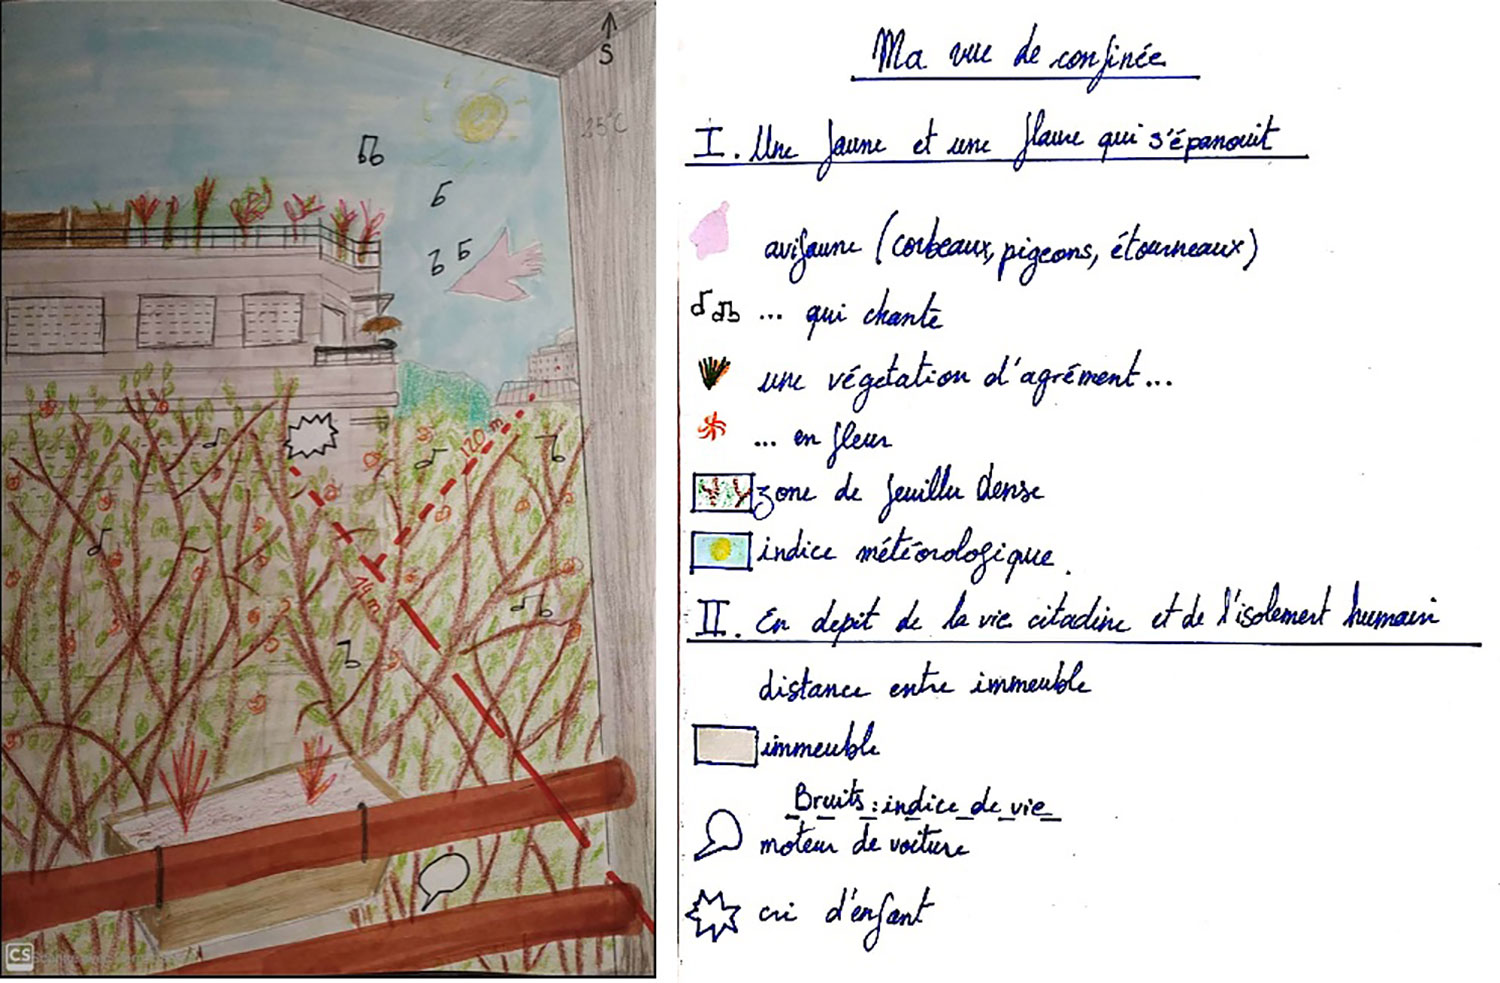 S
25°C
120 m
14 m
CS
Ma vue de confinée
I. Une faune et une flaure qui s'épanouit
avifaune (corbeaux, pigeons, étourneaux)
... qui chante
une végetation d'agrément...
... en fleur
zone de feuillu dense
indice météorologique.
II. En depit de la vie citadine et de l'isolement humain
distance entre immeuble
immeuble
Bruits : indice de vie
moteur de voiture
cri d'enfant